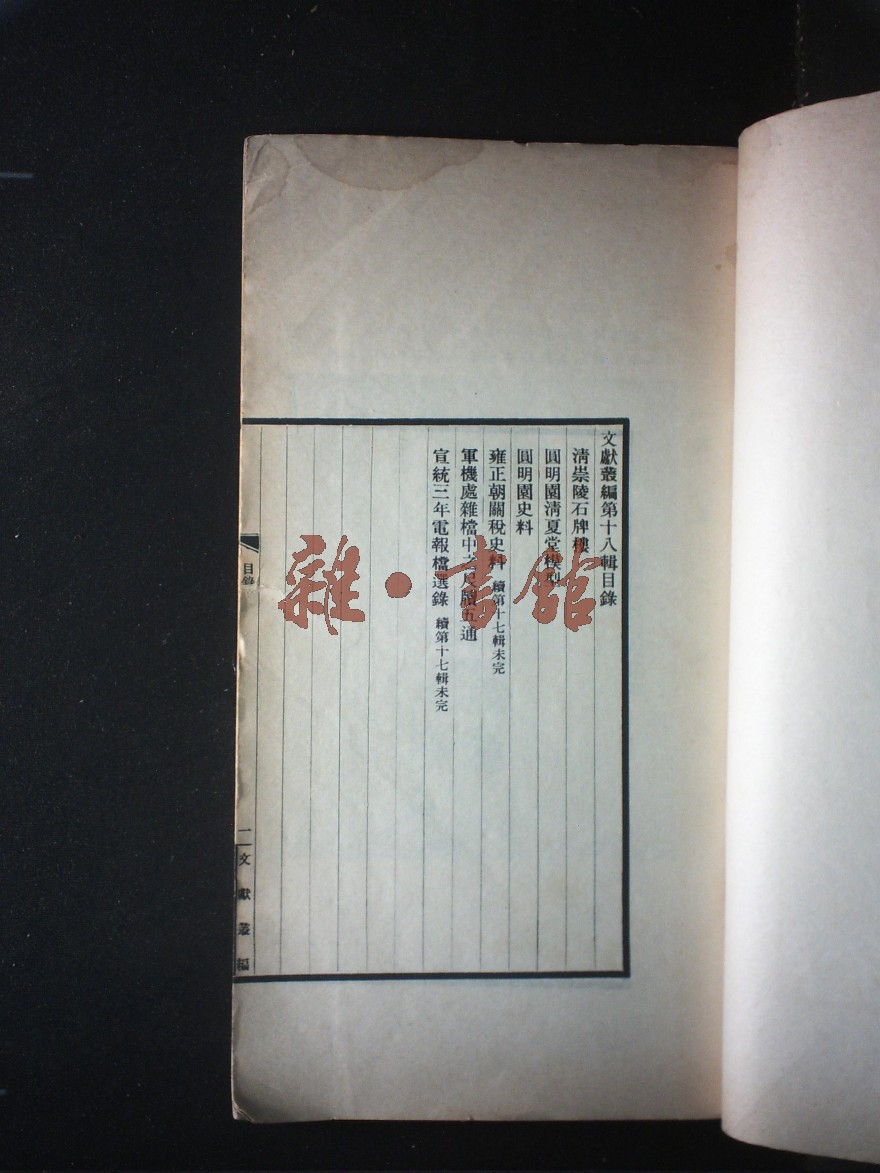 文獻叢編第十八輯目錄
清崇陵石牌樓
圓明園清夏堂模型
圓明園史料
雍正朝關稅史料 續第十七輯未完
軍機處雜檔中之尺牘五通
宣統三年電報檔選錄 續第十七輯未完
目錄
一
文獻叢編
雜·書館